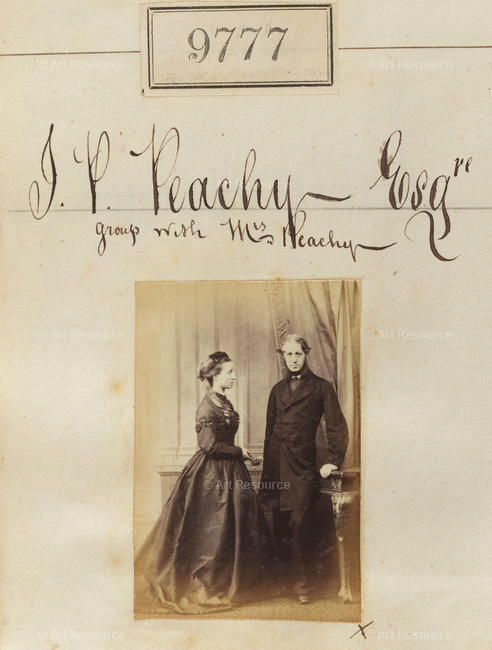 9777
J. P. Peachy Esqre
group with Mrs Peachy
x
© Art Resource
© Art Resource
© Art Resource
© Art Resource
© Art Resource
© Art Resource
© Art Resource